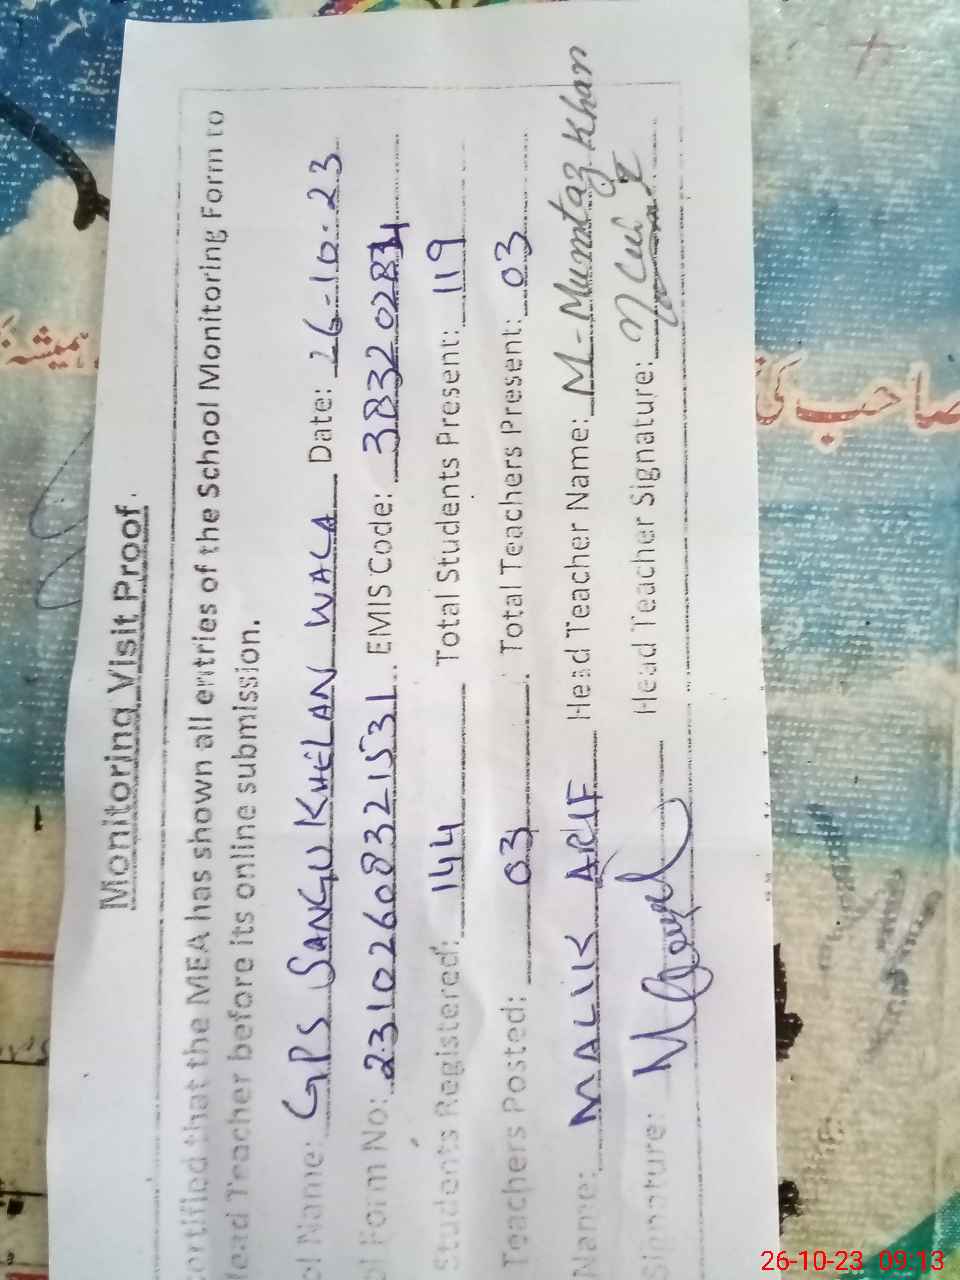 Monitoring Visit Proof
ertified that the MEA has shown all entries of the School Monitoring Form to
Head Teacher before its online submission.
ol Name: GPS SANGU KHELAN WALA Date: 26-10-23
ol Form No: 23102608321531 EMIS Code: 38320284
Students Registered: 144 Total Students Present: 119
Teachers Posted: 03 Total Teachers Present: 03
Name: MALIK ARIF Head Teacher Name: M-Mumtaz Khan
Signature: Head Teacher Signature:
ہمیشہ
صاحب کی
26-10-23 09:13